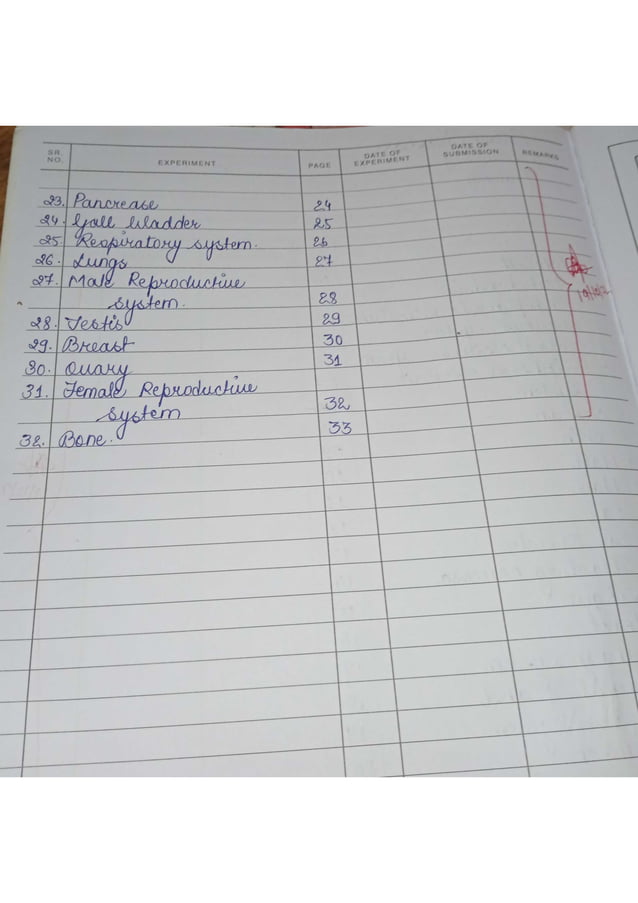 SR. NO. EXPERIMENT PAGE DATE OF EXPERIMENT DATE OF SUBMISSION REMARKS
23. Pancrease 24
24. Gall bladder 25
25. Respiratory system. 26
26. Lungs 27
27. Male Reproductive
system. 28
28. Testis 29
29. Breast 30
30. Ovary 31
31. Female Reproductive
system 32
32. Bone. 33